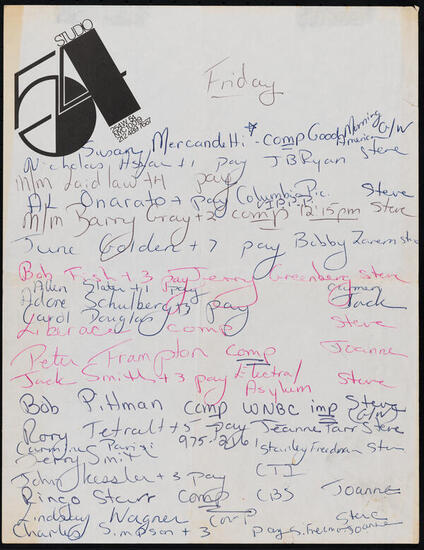 STUDIO
54
254 W. 54
NYC 10019
212 489 7667
Friday
Susan Mercandetti * - comp Good Morning America G/W
Nicholas + 1 pay JB Ryan Steve
m/m Laidlaw + 4 pay
Al Onorato + pay Columbia Pic. Steve
V.I.P.
m/m Barry Gray + 2 comp 12:15pm Steve
June Golden + 7 pay Bobby Zarem Steve
Bob Fish + 3 pay Jerry Greenberg Steve
Allen + 1 pay
Adore Schulberg + 3 pay Jack
Carol Douglas
Liberace comp Steve
Peter Frampton comp Joanne
Jack Smith + 3 pay Elektra/ Asylum Steve
Bob Pittman comp WNBC imp Steve G/W
Rory Tetrault + 5 pay Jeanne Tarr Steve
Carmine 975- Stanley Friedman Steve
Jerry Smit
John Kessler + 3 pay CTI
Ringo Starr comp CBS Joanne
Lindsay Wagner comp Steve
Charles Simpson + 3 pay Joanne